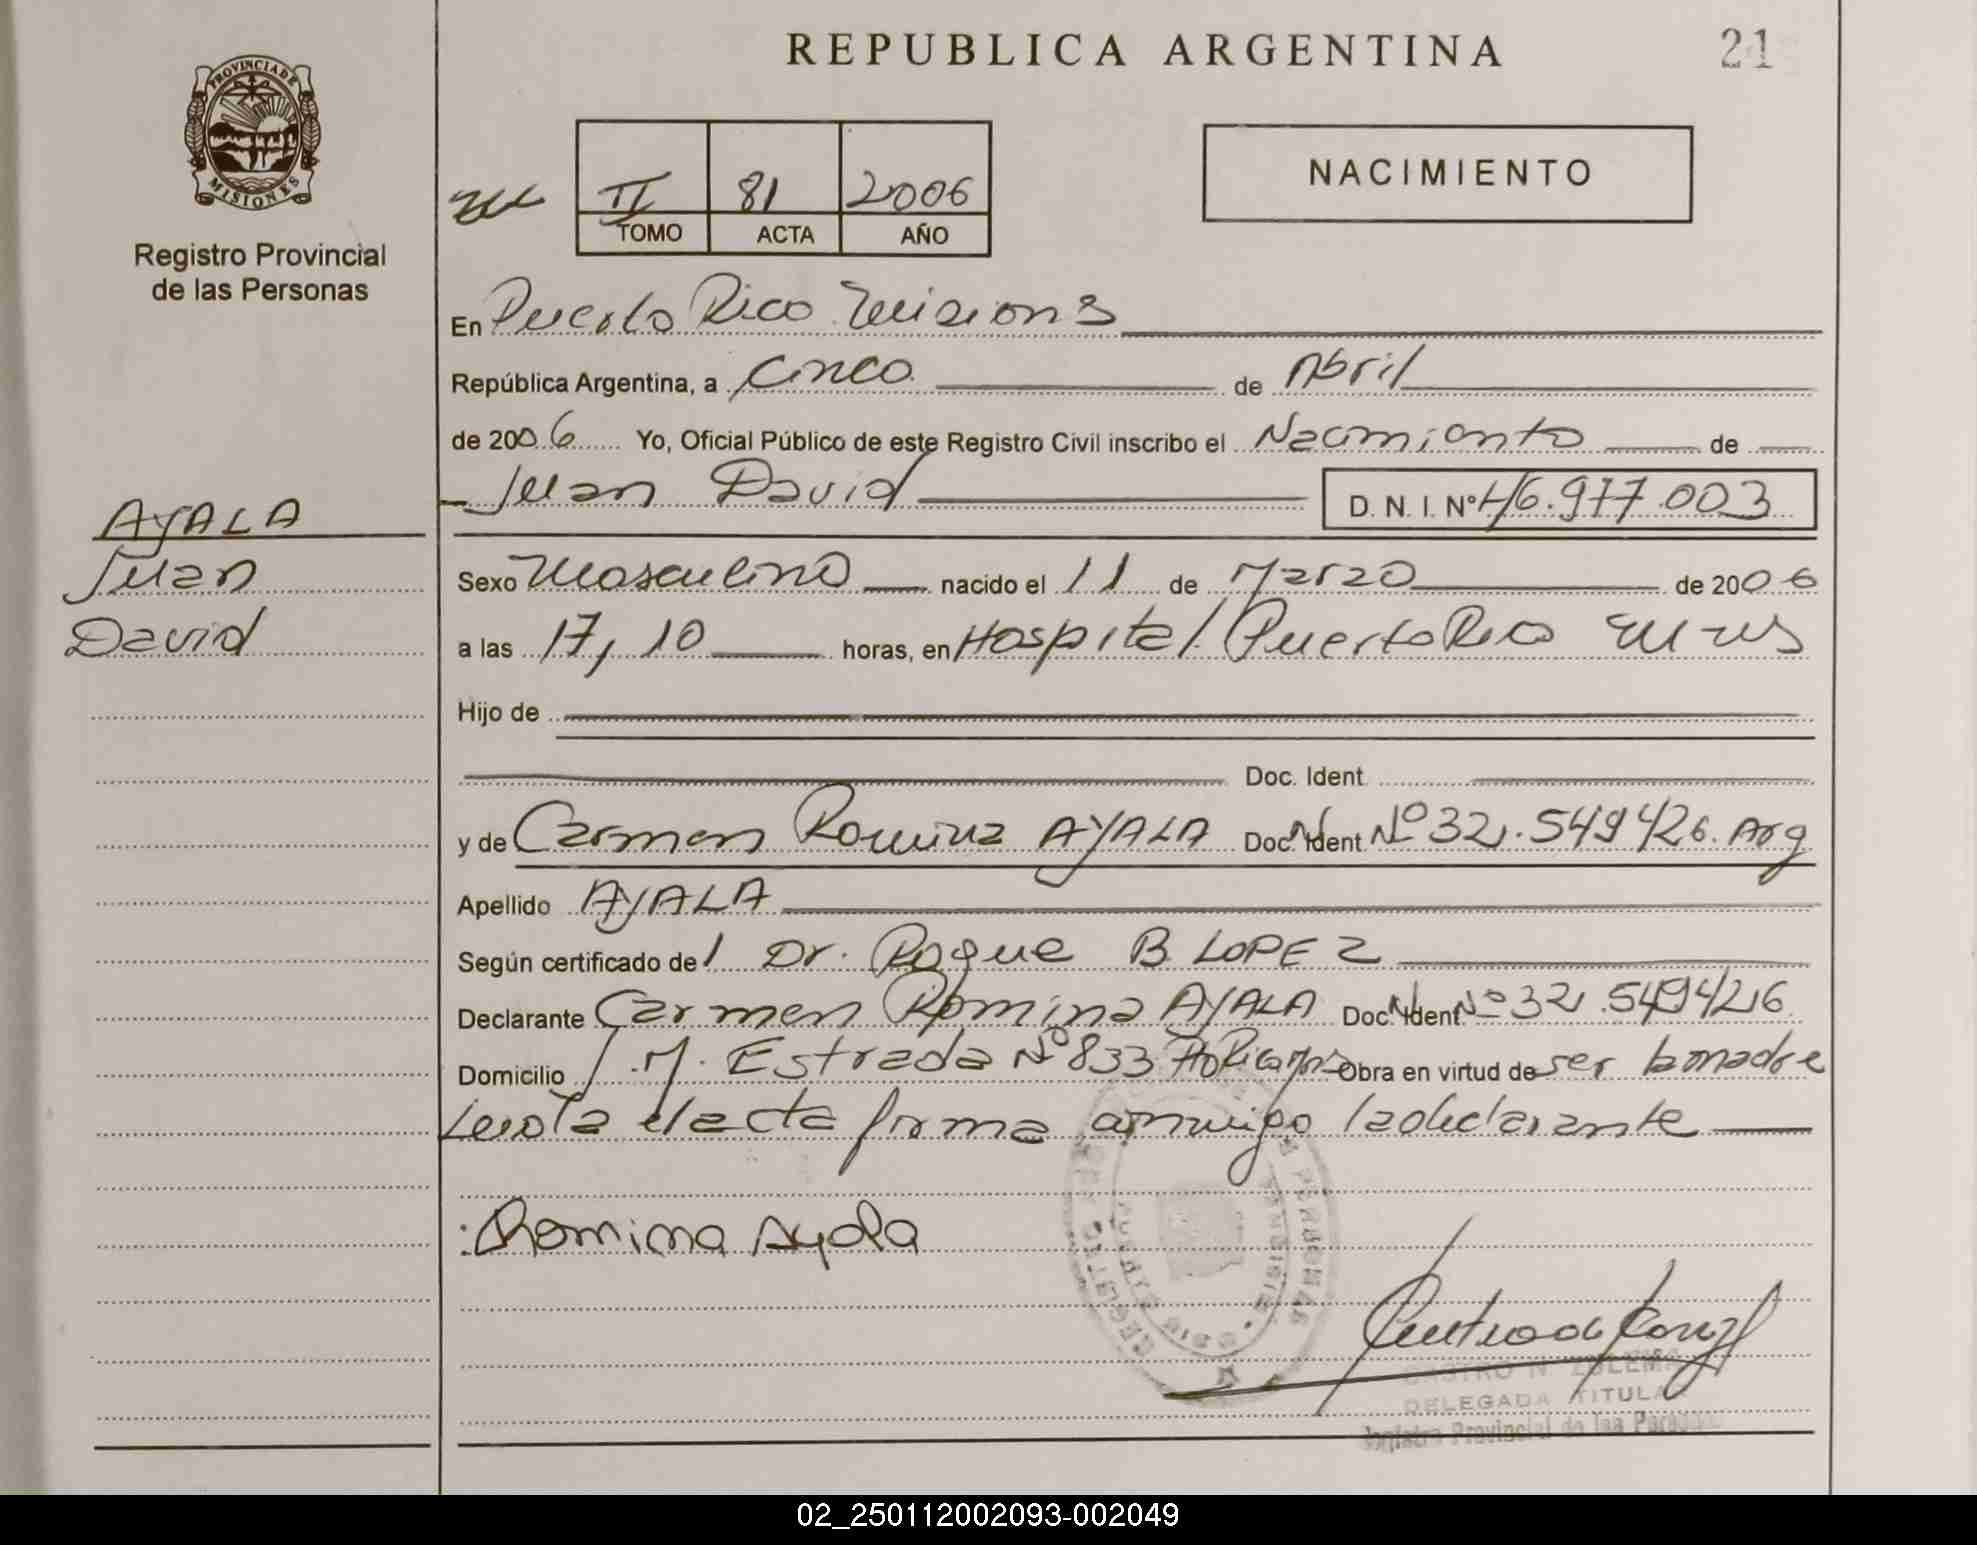 REPUBLICA ARGENTINA
21
PROVINCIA DE
MISIONES
Registro Provincial
de las Personas
II 81 2006
TOMO ACTA AÑO
NACIMIENTO
En Puerto Rico Misiones
República Argentina, a Cinco de Abril
de 2006 Yo, Oficial Público de este Registro Civil inscribo el Nacimiento de
Juan David D. N. I. Nº 46.977.003
AYALA
Juan
David
Sexo Masculino nacido el 11 de Marzo de 2006
a las 17,10 horas, en Hospital Puerto Rico
Hijo de
Doc. Ident
y de Carmen Romina AYALA Doc. Ident Nº 32.549426. Arg
Apellido AYALA
Según certificado del Dr. Roque B. LOPEZ
Declarante Carmen Romina AYALA Doc. Ident Nº 32.549426
Domicilio J.M. Estrada Nº 833 Obra en virtud de ser la madre
Leida el acta firma conmigo la declarante
Romina Ayala
CASTRO N. ZULEMA
DELEGADA TITULAR
Registro Provincial de las Personas
02_250112002093-002049